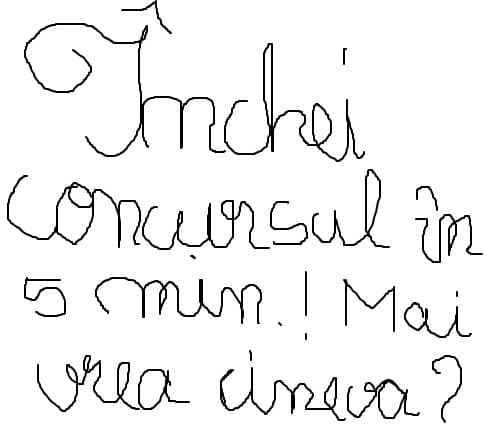 Închei
concursul în
5 min.! Mai
vrea cineva?